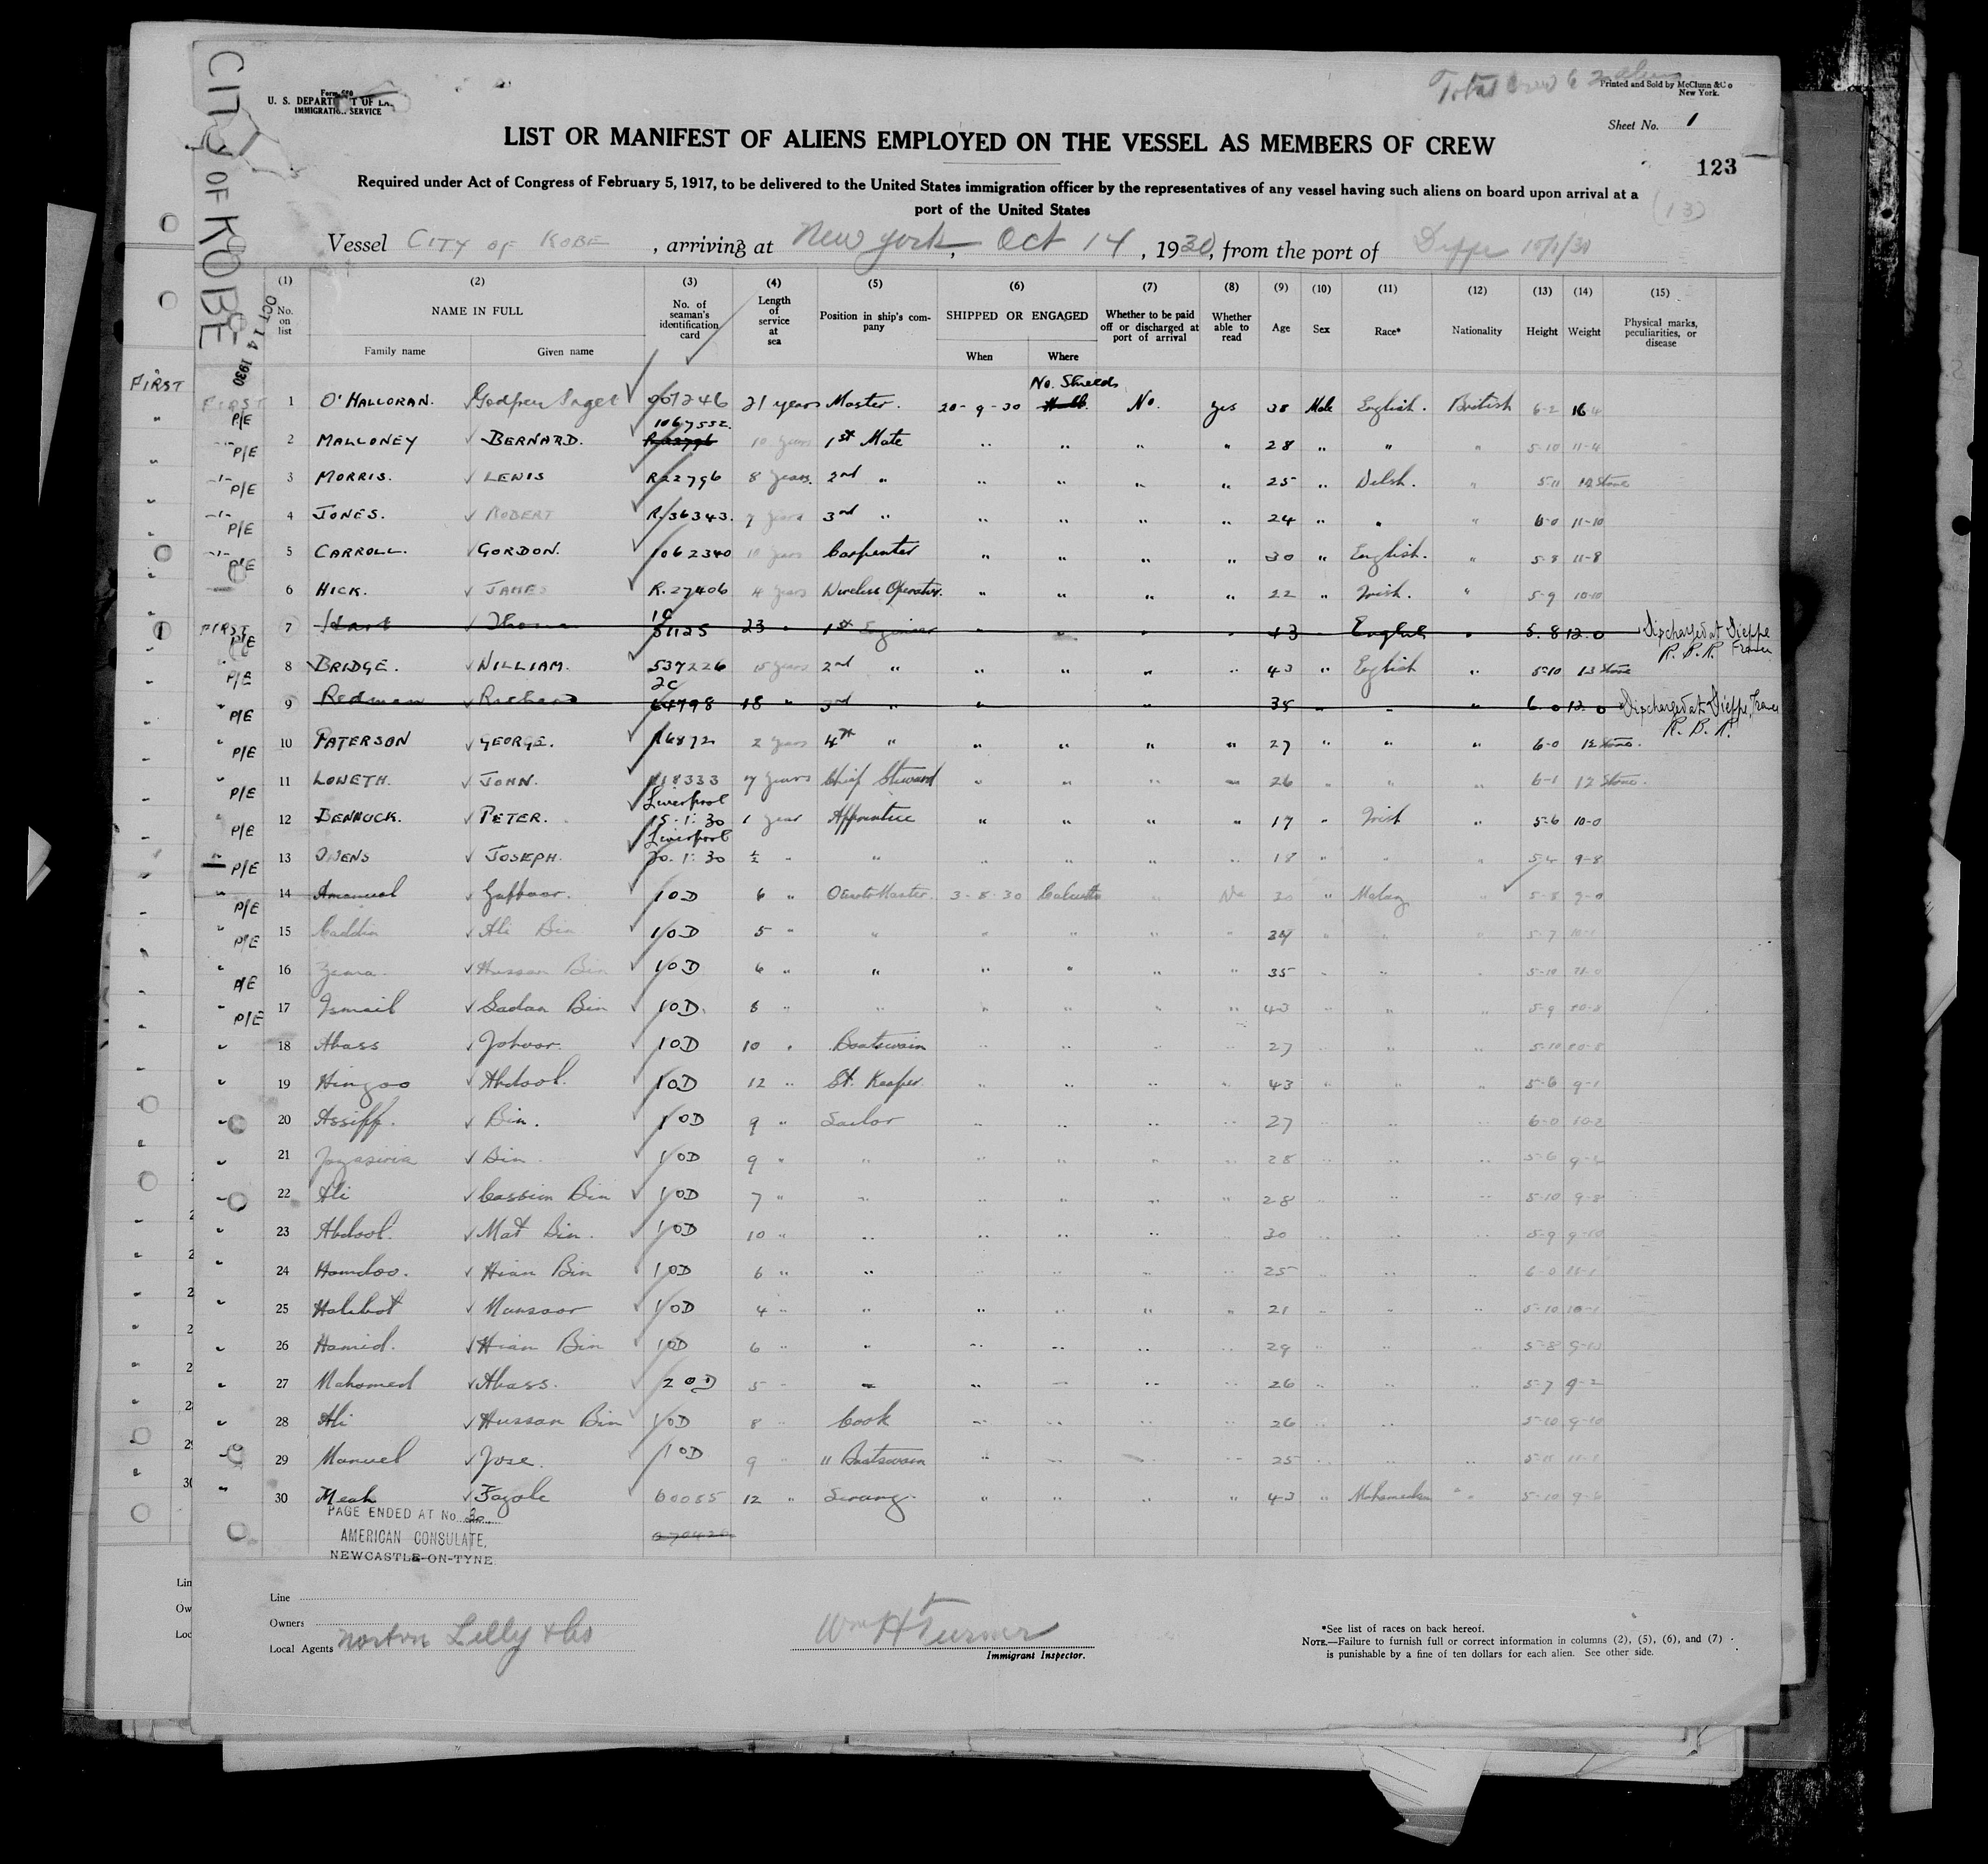 CITY OF KOBE
OCT 14 1930
Form 680
U. S. DEPARTMENT OF LA
IMMIGRATION SERVICE
Total crew 62 aliens
Printed and Sold by McClunn & Co
New York.
Sheet No. 1
LIST OR MANIFEST OF ALIENS EMPLOYED ON THE VESSEL AS MEMBERS OF CREW
123
Required under Act of Congress of February 5, 1917, to be delivered to the United States immigration officer by the representatives of any vessel having such aliens on board upon arrival at a
port of the United States
(13)
Vessel CITY OF KOBE, arriving at New York, Oct 14, 1930, from the port of Dieppe
(1) (2) (3) (4) (5) (6) (7) (8) (9) (10) (11) (12) (13) (14) (15)
No. on list NAME IN FULL No. of seaman's identification card Length of service at sea Position in ship's company SHIPPED OR ENGAGED Whether to be paid off or discharged at port of arrival Whether able to read Age Sex Race* Nationality Height Weight Physical marks, peculiarities, or disease
Family name Given name When Where
FIRST
No. Shields
FIRST P/E 1 O'HALLORAN. Godfrey 21 years Master. 20-9-30 Hull No. yes 38 Male English. British 6-2 16-4
1067552.
P/E 2 MALLONEY BERNARD. R.22796 10 years 1st Mate " " " " 28 " " " 5-10 11-4
P/E 3 MORRIS. LEWIS R.22796 8 years. 2nd " " " " " 25 " Welsh. " 5-11 12 Stone
P/E 4 JONES. ROBERT R.36343. 7 years 3rd " " " " " 24 " " " 6-0 11-10
P/E 5 CARROLL. GORDON. 1062340 10 years Carpenter " " " " 30 " English. " 5-8 11-8
6 HICK. JAMES R.27406 4 years Wireless Operator. " " " " 22 " Irish. " 5-9 10-10
FIRST P/E 7 Hart 51125 23 " 1st Engineer " " " " 43 " English " 5.8 12.0 Discharged at Dieppe France R.B.R.
P/E 8 BRIDGE. WILLIAM. 537226 15 years 2nd " " " " " 43 " English " 5-10 13 Stone
2C
P/E 9 Redman Richard 64798 18 " 3rd " " " 35 " " 6.0 12.0 Discharged at Dieppe, France R.B.R.
P/E 10 PATERSON GEORGE. 2 years 4th " " " " " 27 " " " 6-0 12 Stone.
P/E 11 LOWETH. JOHN. 7 years Chief Steward " " " " 26 " " " 6-1 12 Stone.
Liverpool
P/E 12 BENNUCK. PETER. 15.1.30 1 year Apprentice " " " " 17 " Irish " 5-6 10-0
Liverpool
P/E 13 OWENS JOSEPH. 20.1.30 ½ " " " " " " 18 " " " 5-4 9-8
P/E 14 Gaffoor. 10D 6 " 3-8-30 Calcutta " No 30 " Malay " 5-8 9-0
P/E 15 Ali Bin 10D 5 " " " " " " 34 " " " 5-7 10-1
P/E 16 Hussan Bin 10D 6 " " " " " " 35 " " " 5-10 11-0
P/E 17 Ismail Sadan Bin 10D. 8 " " " " " " 43 " " " 5-9 10-8
18 Abass Johoor. 10D 10 " Boatswain " " " " 27 " " " 5-10 10-8
19 Hingoo Abdool. 10D 12 " St. Keeper. " " " " 43 " " " 5-6 9-1
20 Assiff. Bin. 10D 9 " Sailor " " " " 27 " " " 6-0 10-2
21 Bin 10D 9 " " " " " " 28 " " " 5-6
22 Ali Cassim Bin 10D 7 " " " " " " 28 " " " 5-10 9-8
23 Abdool. Mat Bin. 10D 10 " " " " " " 30 " " " 5-9 9-10
24 Hamdoo. Hian Bin 10D 6 " " " " " " 25 " " " 6-0 11-1
25 Mansoor 10D 4 " " " " " " 21 " " " 5-10 10-1
26 Hamid. Hian Bin 10D 6 " " " " " " 29 " " " 5-8 9-10
27 Mahomed Abass. 20D 5 " " " " " " 26 " " " 5-7 9-2
28 Ali Hussan Bin 10D 8 " Cook " " " " 26 " " " 5-10 9-10
29 Manuel Jose. 10D 9 " " Boatswain " " " " 25 " " " 5-11 11-1
30 Meah Fazole 00055 12 " Serang. " " " " 43 " Mohamedan " 5-10 9-6
PAGE ENDED AT No. 30
AMERICAN CONSULATE,
NEWCASTLE-ON-TYNE.
Line
Owners
Local Agents Norton Lilly & Co
Wm H Turner
Immigrant Inspector.
*See list of races on back hereof.
NOTE.—Failure to furnish full or correct information in columns (2), (5), (6), and (7)
is punishable by a fine of ten dollars for each alien. See other side.